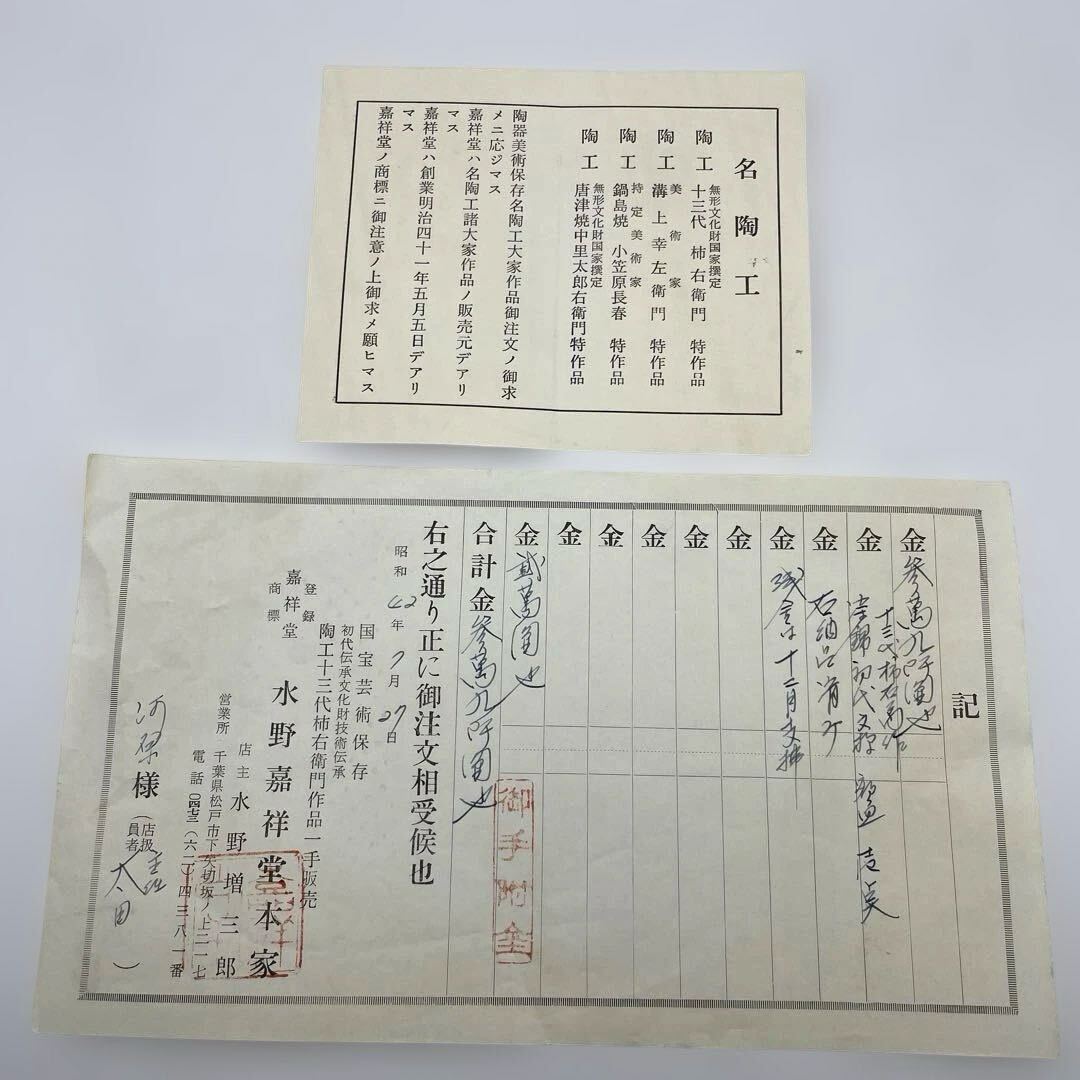 名陶工
無形文化財国家撰定
陶工 十三代 柿右衛門 特作品
美術家
陶工 溝上幸左衛門 特作品
持定美術家
陶工 鍋島焼 小笠原長春 特作品
無形文化財国家撰定
陶工 唐津焼中里太郎右衛門特作品
陶器美術保存名陶工大家作品御注文ノ御求
メニ応ジマス
嘉祥堂ハ名陶工諸大家作品ノ販売元デアリ
マス
嘉祥堂ハ創業明治四十一年五月五日デアリ
マス
嘉祥堂ノ商標ニ御注意ノ上御求メ願ヒマス
記
金 参萬九阡圓也
十三代柿右衛門作
金
金 右納品済み
金 残金は十二月支払
金
金
金
金
金
金
金 弐萬圓也
御手附金
合計金 参萬九阡圓也
右之通り正に御注文相受候也
昭和42年7月27日
国宝芸術保存
初代伝承文化財技術伝承
陶工十三代柿右衛門作品一手販売
登録
嘉祥堂
商標
水野嘉祥堂本家
店主 水野増三郎
営業所 千葉県松戸市下矢切坂ノ上二一七
電話〇四七三(六二)四三八一番
様
(店扱員者 太田)